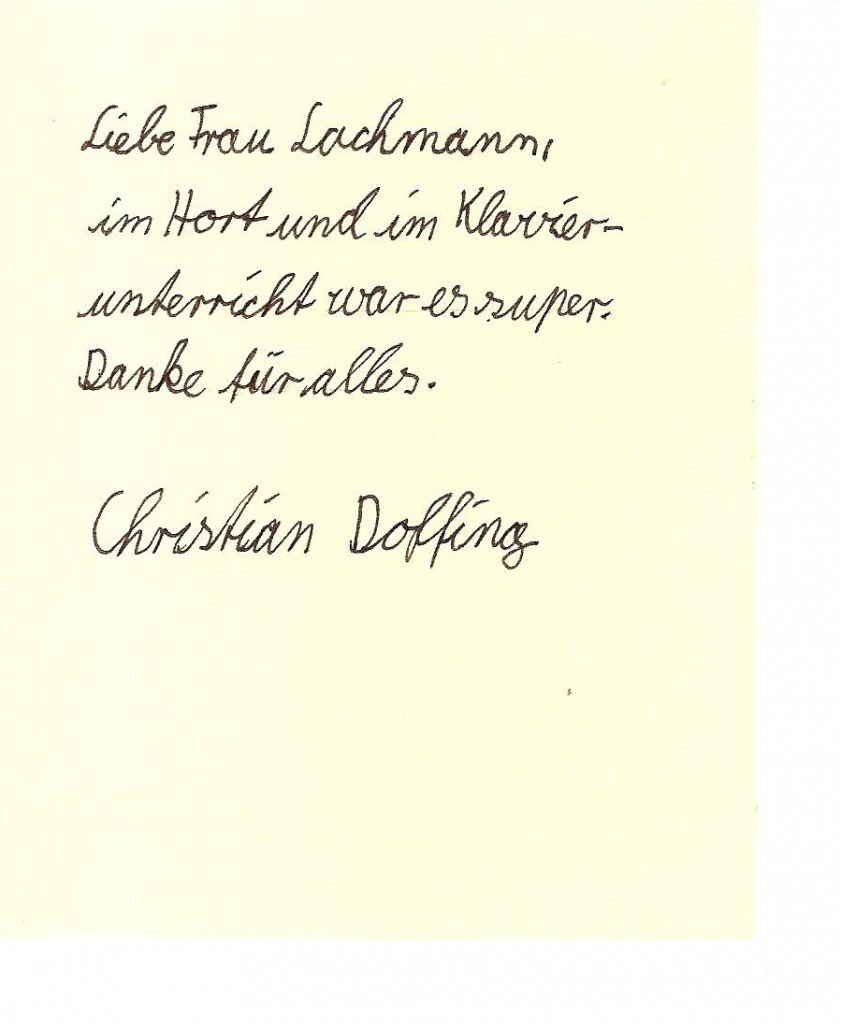 Liebe Frau Lachmann,
im Hort und im Klavier-
unterricht war es super.
Danke für alles.
Christian Doffing